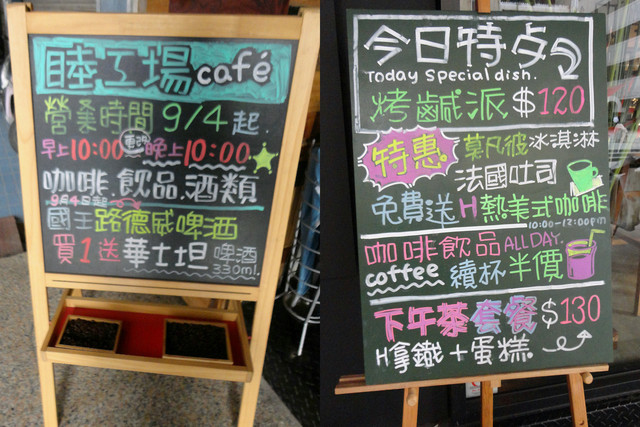 睦工場 café
營業時間 9/4起.
早上10:00 晚上10:00
咖啡.飲品.酒類
9月4日起
國王路德威啤酒
買1送華士坦啤酒
330ml.
今日特点
Today Special dish.
烤鹹派 $120
特惠。莫凡彼冰淇淋
法國吐司
免費送H熱美式咖啡
10:00-12:00pm
咖啡飲品 ALL DAY.
coffee 續杯半價
下午茶套餐 $130
H拿鐵+蛋糕.